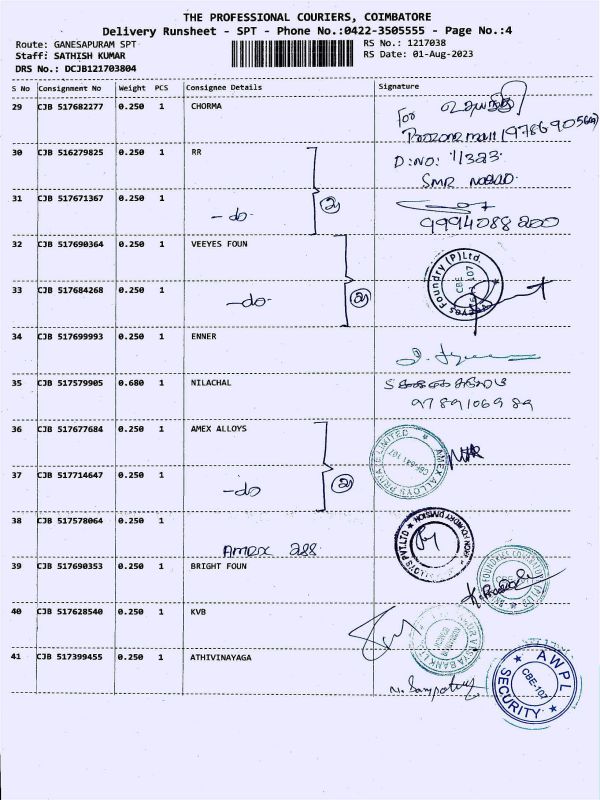 THE PROFESSIONAL COURIERS, COIMBATORE
Delivery Runsheet - SPT - Phone No.:0422-3505555 - Page No.:4
Route: GANESAPURAM SPT
Staff: SATHISH KUMAR
DRS No.: DCJB121703804
RS No.: 1217038
RS Date: 01-Aug-2023
S No Consignment No Weight PCS Consignee Details Signature
29 CJB 517682277 0.250 1 CHORMA
For
30 CJB 516279825 0.250 1 RR
D:NO: 11323
SMR
31 CJB 517671367 0.250 1
-do-
2
9994088200
32 CJB 517690364 0.250 1 VEEYES FOUN
Veeyes Foundry (P) Ltd.
CBE
33 CJB 517684268 0.250 1
-do-
2
34 CJB 517699993 0.250 1 ENNER
35 CJB 517579905 0.680 1 NILACHAL
9789106989
36 CJB 517677684 0.250 1 AMEX ALLOYS
AMEX ALLOYS PRIVATE LIMITED
CBE-641 107
37 CJB 517714647 0.250 1
-do
2
38 CJB 517578064 0.250 1
Amex 288
FOUNDRY DIVISION
ALLOYS PVT.LTD
39 CJB 517690353 0.250 1 BRIGHT FOUN
40 CJB 517628540 0.250 1 KVB
41 CJB 517399455 0.250 1 ATHIVINAYAGA
AWPL
CBE-107
SECURITY